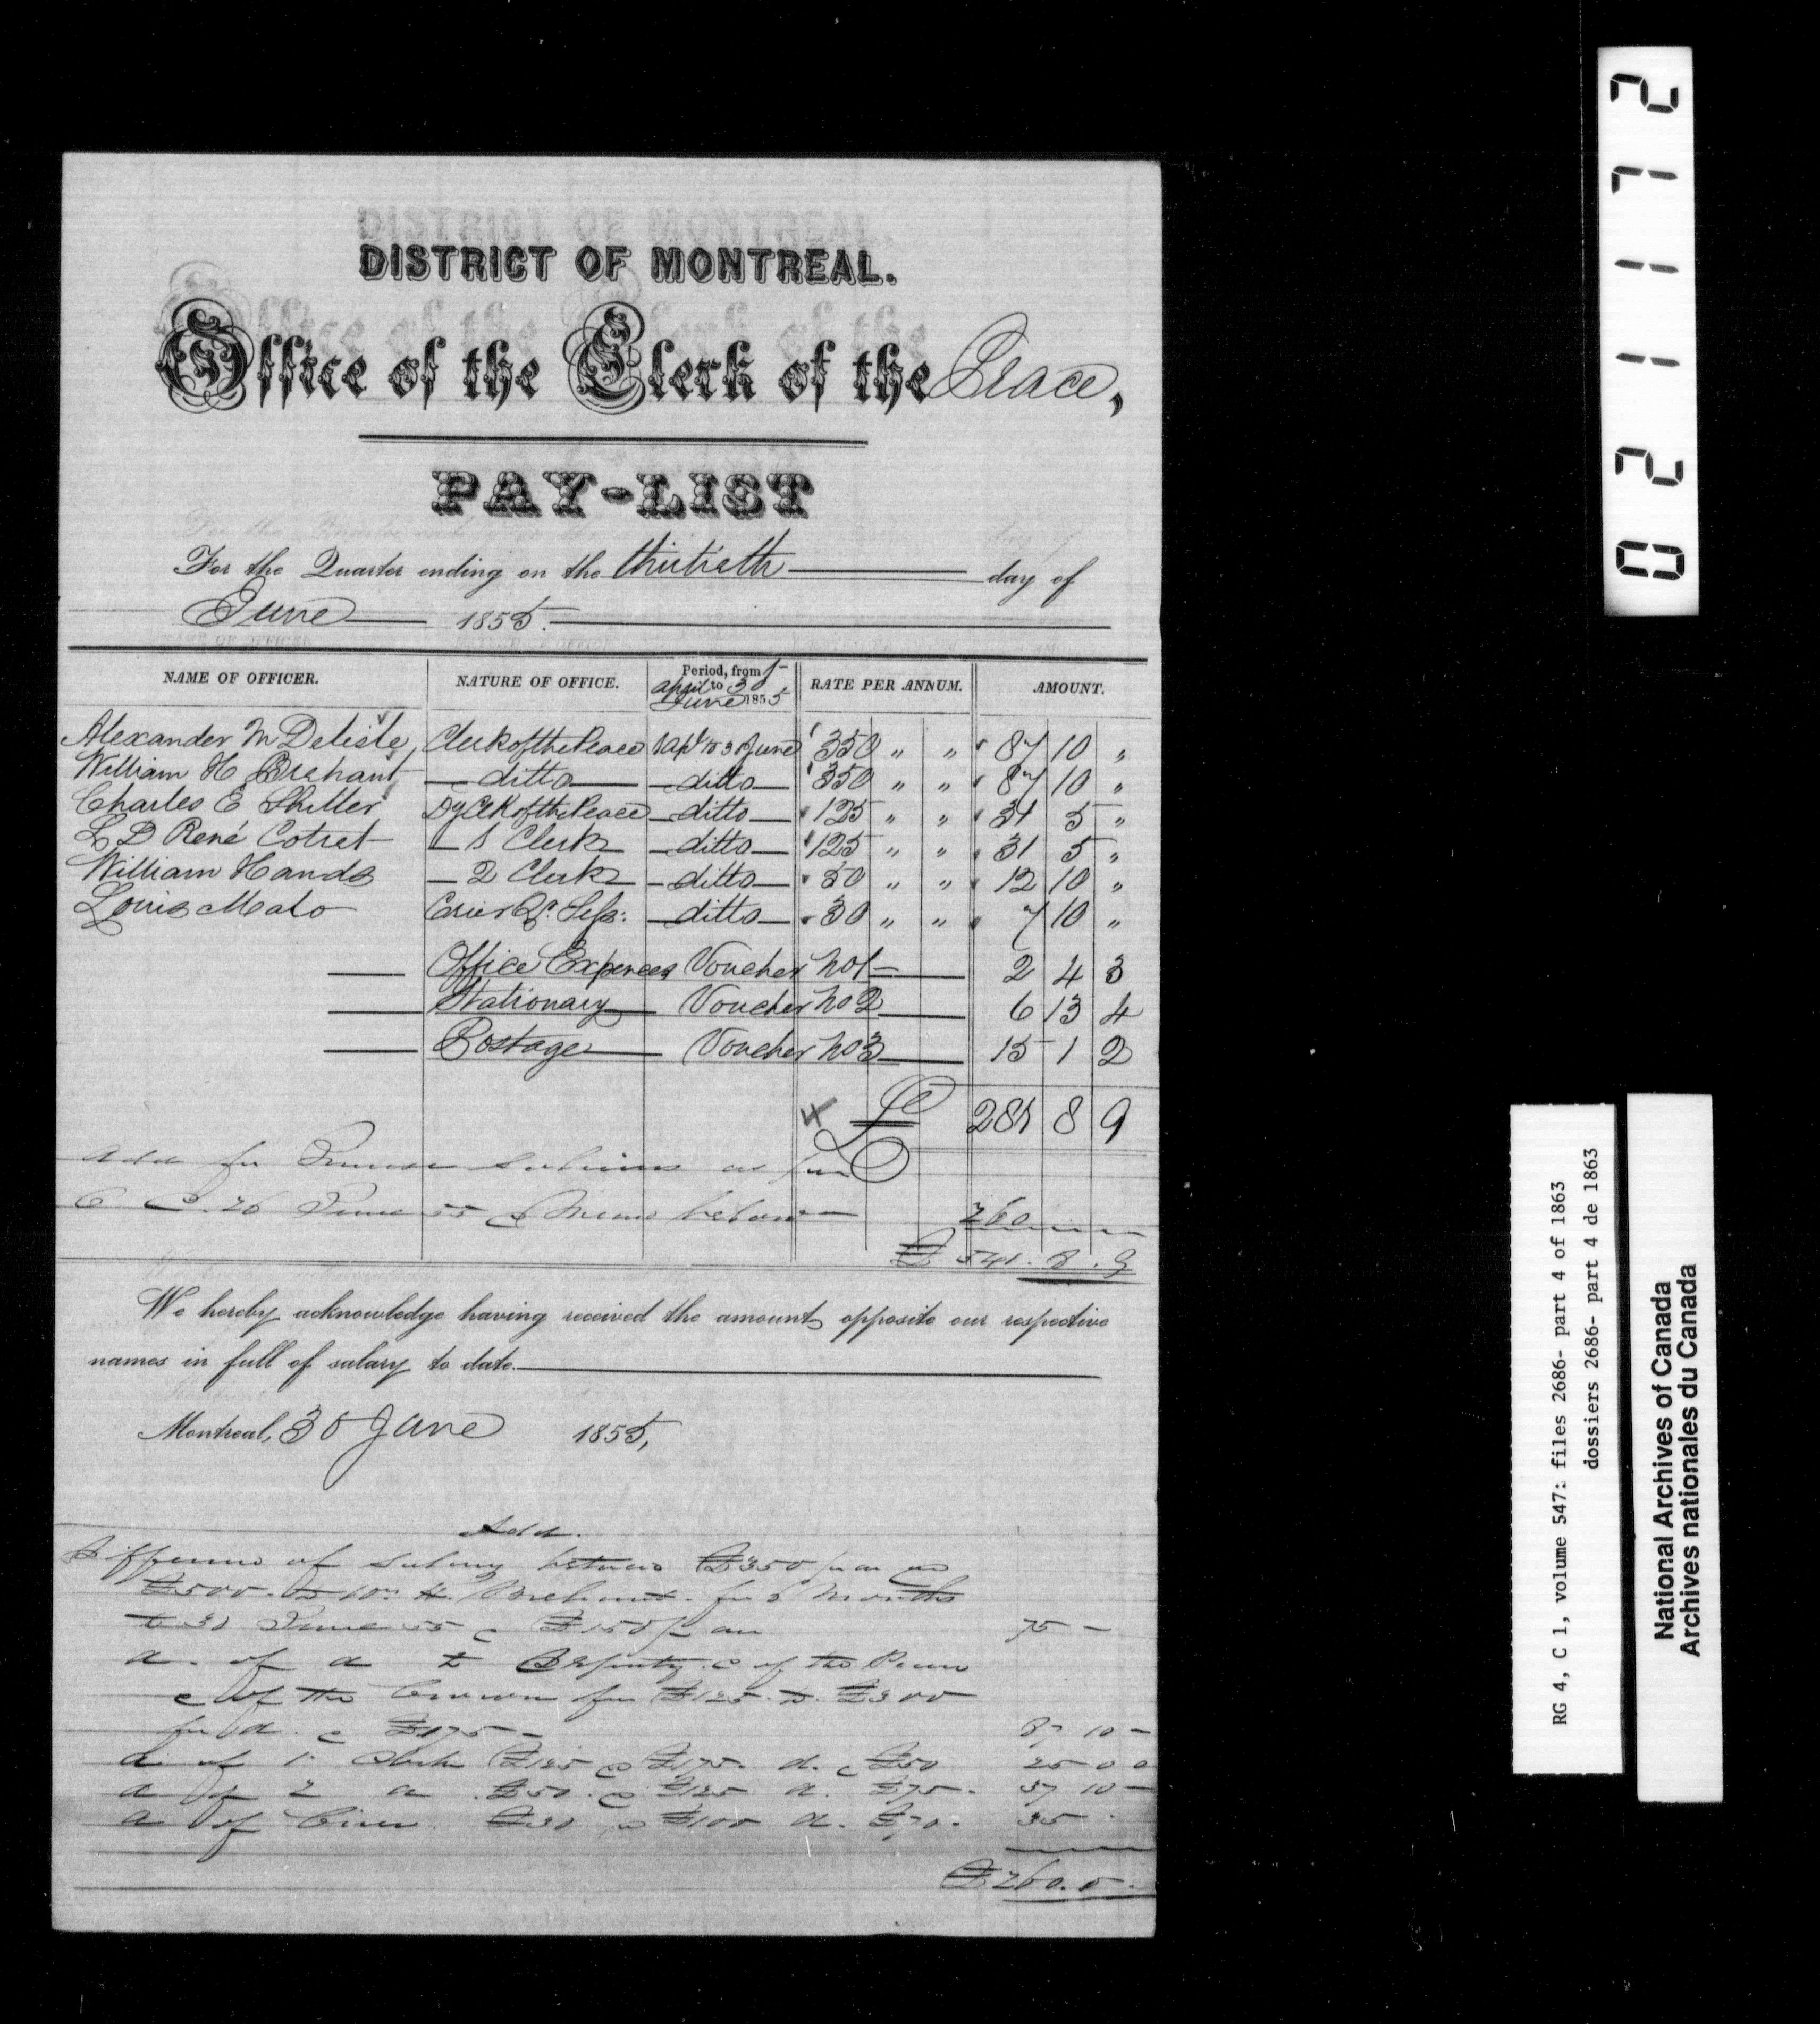 DISTRICT OF MONTREAL.
Office of the Clerk of the Peace,
PAY-LIST
For the Quarter ending on the thirtieth day of
June 1855.
NAME OF OFFICER. NATURE OF OFFICE. Period, from 1 april to 30 June 1855 RATE PER ANNUM. AMOUNT.
Alexander M Delisle, Clerk of the Peace 1 Apl to 30 June 350 " " 87 10 "
William H Brehaut ditto ditto 350 " " 87 10 "
Charles E Shiller Dy Clk of the Peace ditto 125 " " 31 5 "
L D René Cotret 1 Clerk ditto 125 " " 31 5 "
William Hands 2 Clerk ditto 50 " " 12 10 "
Louis Malo Crier Qr. Sess: ditto 30 " " 7 10 "
Office Expences Voucher No 1 2 4 3
Stationary Voucher No 2 6 13 4
Postage Voucher No 3 15 1 2
£ 281 8 9
Add for
26 June 55 & Memo below 260
£ 541. 8. 9
We hereby acknowledge having received the amounts opposite our respective
names in full of salary to date.
Montreal, 30 June 1855,
Add.
Difference of Salary between £350 p an &
£500. to Wm H. Brehaut. for 6 Months
to 30 June 55 @ £150 p an 75 -
d. of d to Deputy C of the Peace
C of the Crown for £125. to £300
for d. @ £175 - 87 10 -
d of 1 Clerk £125 @ £175. d. @ £50 25 0 0
d of 2 d £50 @ £125 d. £75. 37 10 -
d of Crier £30 @ £100 d. £70. 35
£260. 0.
021172
RG 4, C 1, volume 547: files 2686- part 4 of 1863
dossiers 2686- part 4 de 1863
National Archives of Canada
Archives nationales du Canada